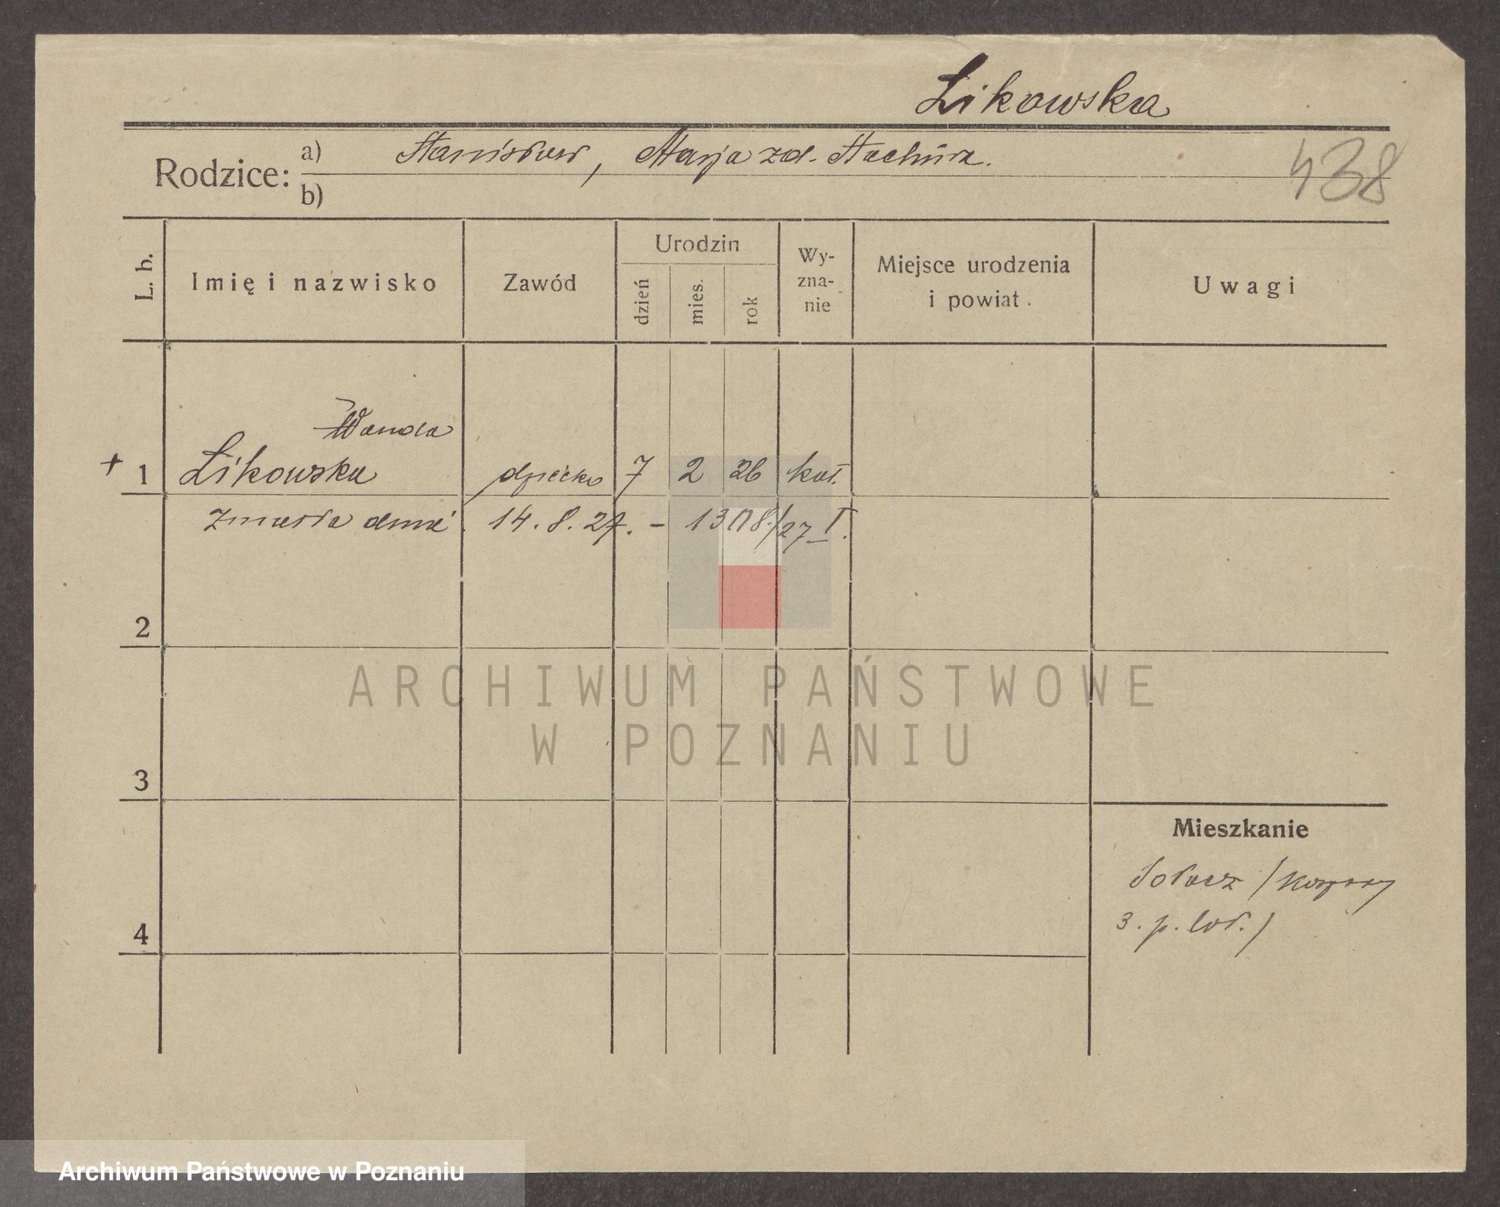 Likowska
Rodzice: a) Stanisław, Marja zd. Stachura.
b)
438
L. b.
Imię i nazwisko
Zawód
Urodzin
dzień
mies.
rok
Wy-
zna-
nie
Miejsce urodzenia
i powiat.
Uwagi
Wanda
+ 1 Likowska dziecko 7 2 26 kat.
zmarła dnia 14. 8. 27. - 1308/27 I.
2
3
4
Mieszkanie
Sołacz / koszary
3. p. lot. /
ARCHIWUM PAŃSTWOWE
W POZNANIU
Archiwum Państwowe w Poznaniu